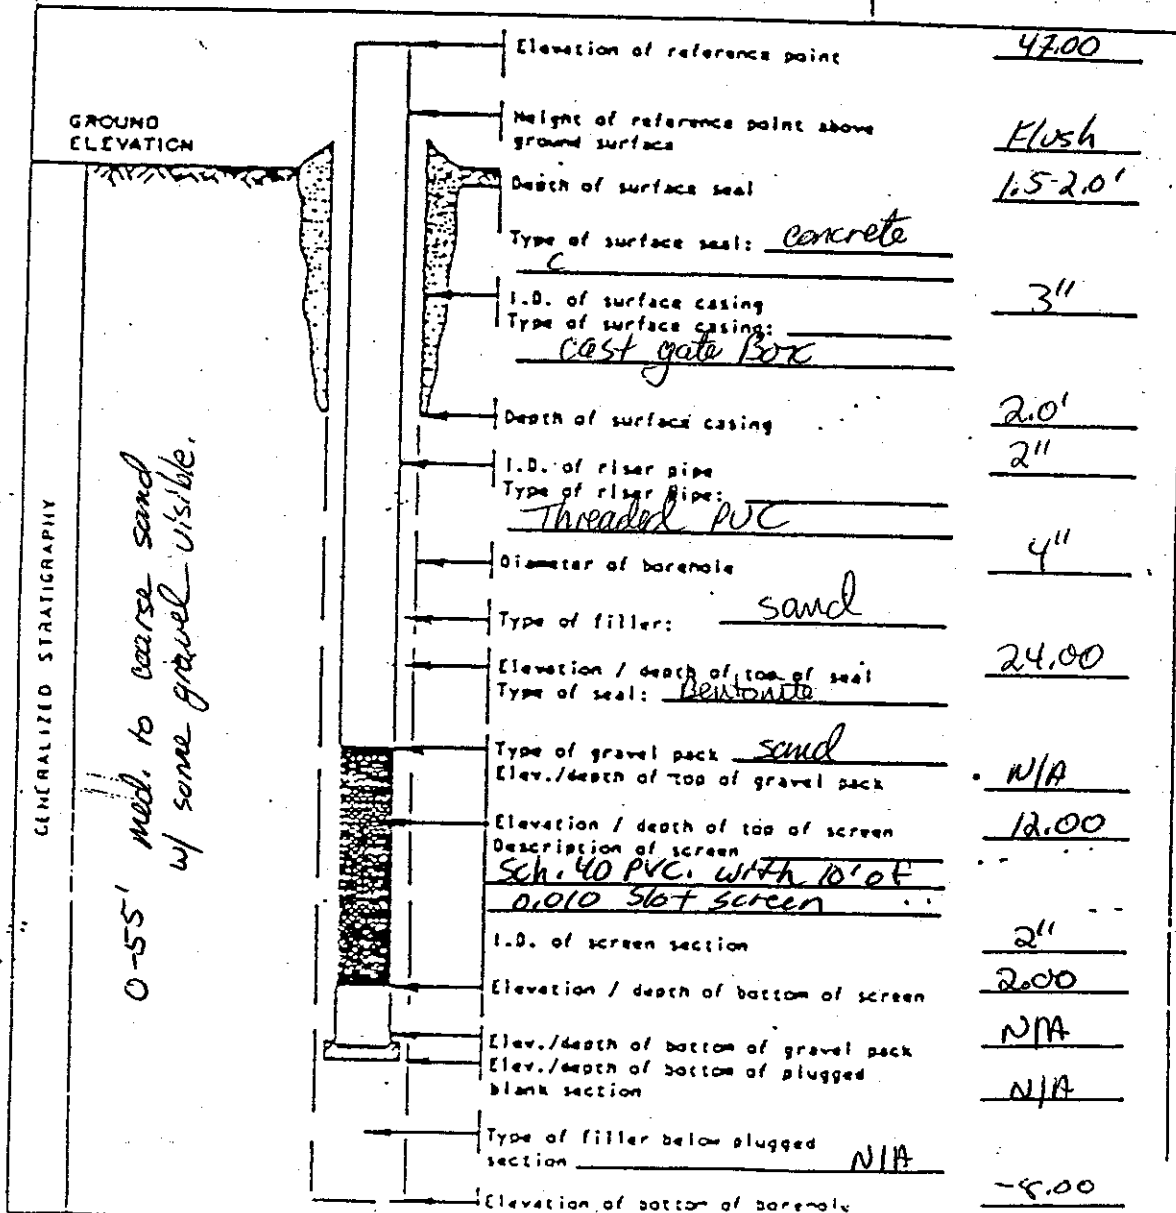 Elevation of reference point 47.00
GROUND
ELEVATION
Height of reference point above
ground surface Flush
Depth of surface seal 1.5-2.0'
Type of surface seal: concrete
C
I.D. of surface casing 3"
Type of surface casing:
cast gate Box
Depth of surface casing 2.0'
I.D. of riser pipe 2"
Type of riser pipe:
Threaded PVC
Diameter of borehole 4"
Type of filler: sand
Elevation / depth of top of seal 24.00
Type of seal: Bentonite
Type of gravel pack sand
Elev./depth of top of gravel pack N/A
Elevation / depth of top of screen 12.00
Description of screen
Sch. 40 PVC. with 10' of
0.010 Slot screen
I.D. of screen section 2"
Elevation / depth of bottom of screen 2.00
Elev./depth of bottom of gravel pack N/A
Elev./depth of bottom of plugged
blank section N/A
Type of filler below plugged
section N/A
Elevation of bottom of borehole -8.00
GENERALIZED STRATIGRAPHY
0-55' med. to coarse sand
w/ some gravel visible.